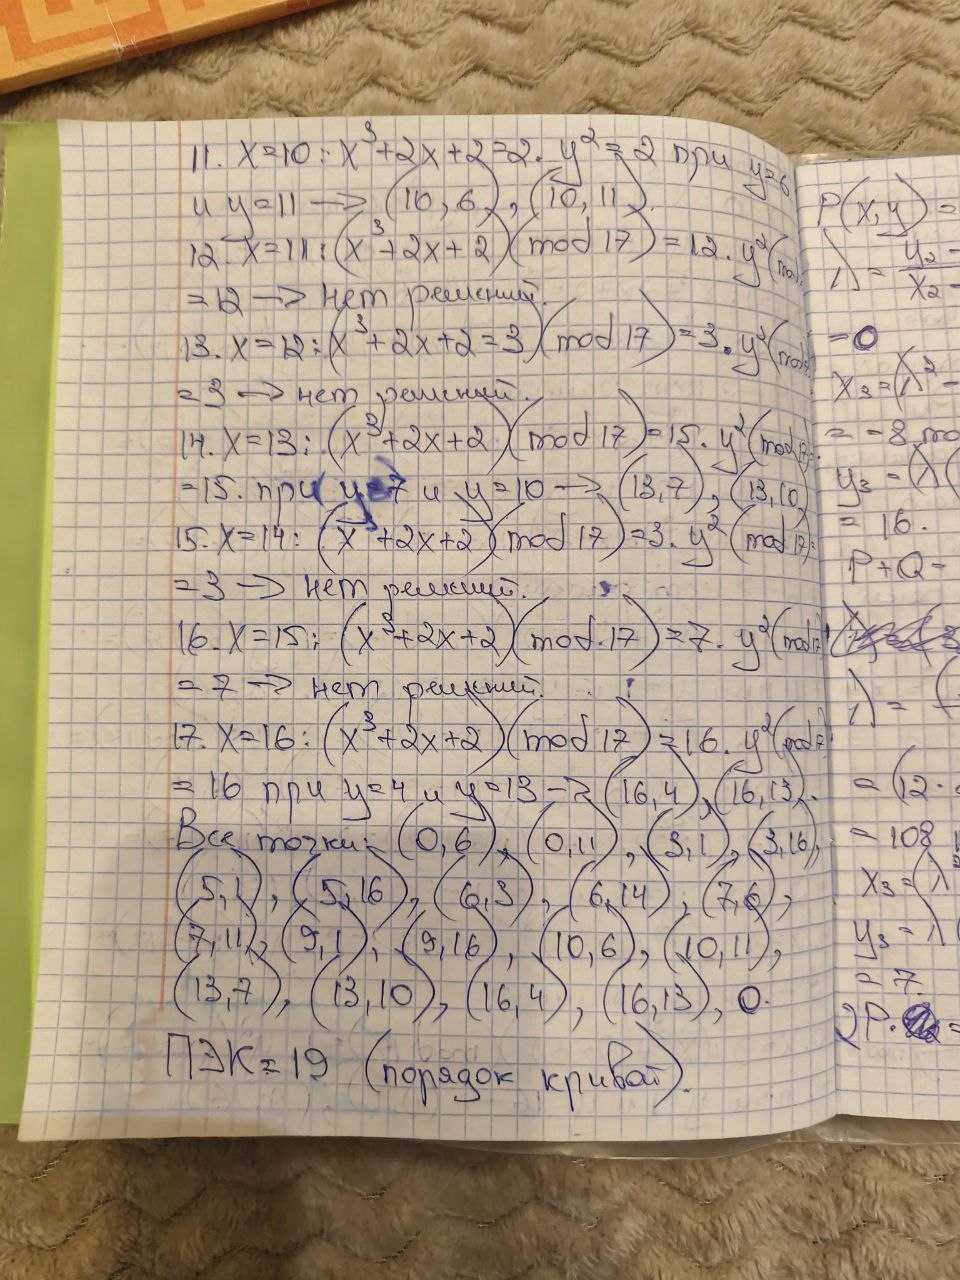 11. X=10: x³+2x+2=2. y²=2 при y=6
и y=11 → (10,6), (10,11).
12. X=11: (x³+2x+2)(mod 17)=12. y²(mod
=12 → нет решений.
13. X=12: (x³+2x+2=3)(mod 17)=3. y²(mod
=3 → нет решений.
14. X=13: (x³+2x+2)(mod 17)=15. y²(mod 17)=
=15. при y=7 и y=10 → (13,7), (13,10)
15. X=14: (x³+2x+2)(mod 17)=3. y²(mod 17)=
=3 → нет решений.
16. X=15: (x³+2x+2)(mod 17)=7. y²(mod 17)
=7 → нет решений.
17. X=16: (x³+2x+2)(mod 17)=16. y²(mod 17
=16 при y=4 и y=13 → (16,4), (16,13).
Все точки: (0,6), (0,11), (3,1), (3,16),
(5,1), (5,16), (6,3), (6,14), (7,6),
(7,11), (9,1), (9,16), (10,6), (10,11),
(13,7), (13,10), (16,4), (16,13), O.
ПЭК=19 (порядок кривой).
P(x,y)=
λ = y₂-
x₂-
=0
x₃=(λ²-
=-8 mo
y₃=(λ(
=16.
P+Q=
λ=(
=(12·
=108
x₃=(λ²
y₃=λ(
=7.
2P·